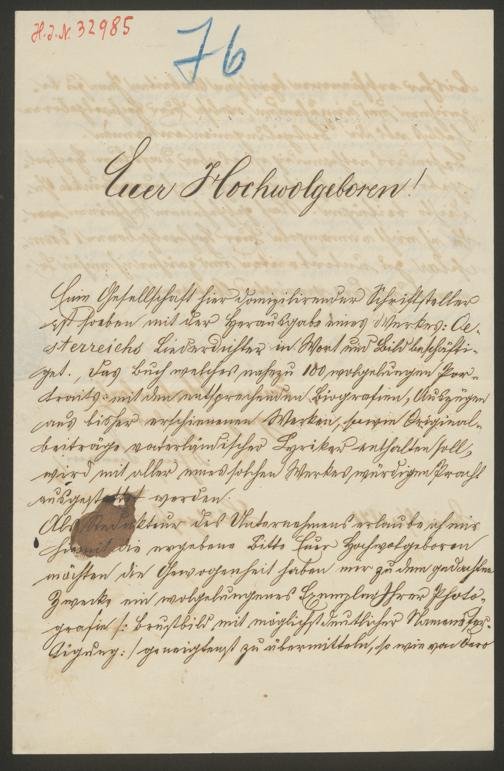 H.I.N. 32985
76
Euer Hochwolgeboren!
Eine Gesellschaft hier domizilirender Schriftsteller
ist soeben mit der Herausgabe eines Werkes: Oe-
sterreichs Liederdichter in Wort und Bild beschäfti-
get. Das Buch welches nahezu 100 wolgelungene Por-
traits mit den entsprechenden Biografien, Auszügen
aus bisher erschienenen Werken, sowie Original-
beiträge vaterländischer Lyriker enthalten soll,
wird mit aller eines solchen Werkes würdigen Pracht
ausgestattet werden.
Als Redakteur des Unternehmens erlaube ich mir
hiemit die ergebene Bitte Euer Hochwolgeboren
möchten die Gewogenheit haben mir zu dem gedachten
Zwecke ein wolgelungenes Exemplar Ihrer Photo-
grafie /: Brustbild mit möglichst deutlicher Namensfer-
tigung :/ geneigtest zu übermitteln, so wie von Dero